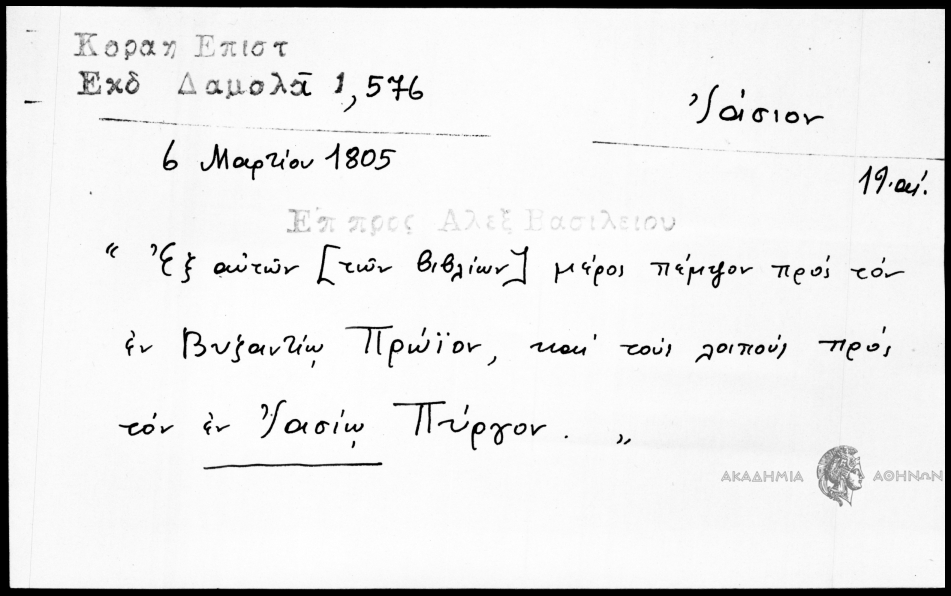 Κοραη Επιστ
Εκδ Δαμολᾶ 1, 576
Ἰάσιον
6 Μαρτίου 1805
19. αἰ.
Επ προς Αλεξ Βασιλειου
“ Ἐξ αὐτῶν [τῶν βιβλίων] μέρος πέμψον πρός τόν
ἐν Βυζαντίῳ Πρώϊον, καί τούς λοιπούς πρός
τόν ἐν Ἰασίῳ Πύργον. „
ΑΚΑΔΗΜΙΑ ΑΘΗΝΩΝ